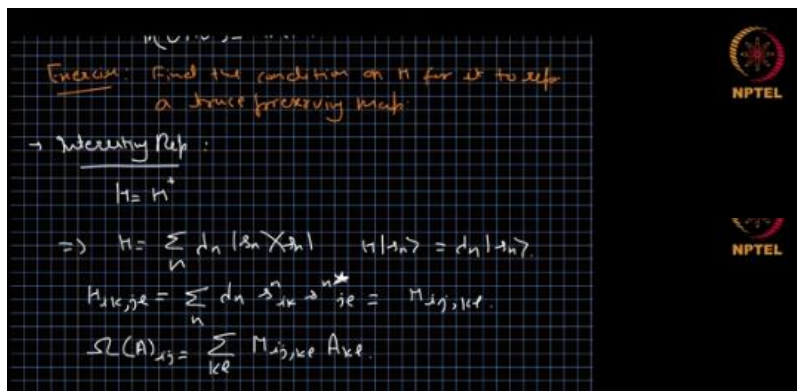 Exercise: Find the condition on M for it to rep
a trace preserving map.
→ Interesting Rep :
M = M⁺
=> M = Σ_n d_n |s_n⟩⟨s_n| M|s_n⟩ = d_n|s_n⟩.
M_{ik,jl} = Σ_n d_n s^n_{ik} s^{n*}_{jl} = M_{ij,kl}.
Ω(A)_{ij} = Σ_{kl} M_{ij,kl} A_{kl}.
NPTEL
NPTEL